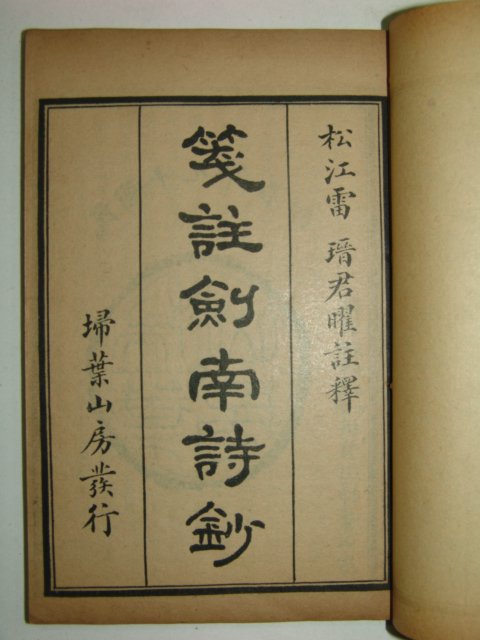 松江雷 瑨君曜註釋
箋註劍南詩鈔
埽葉山房發行